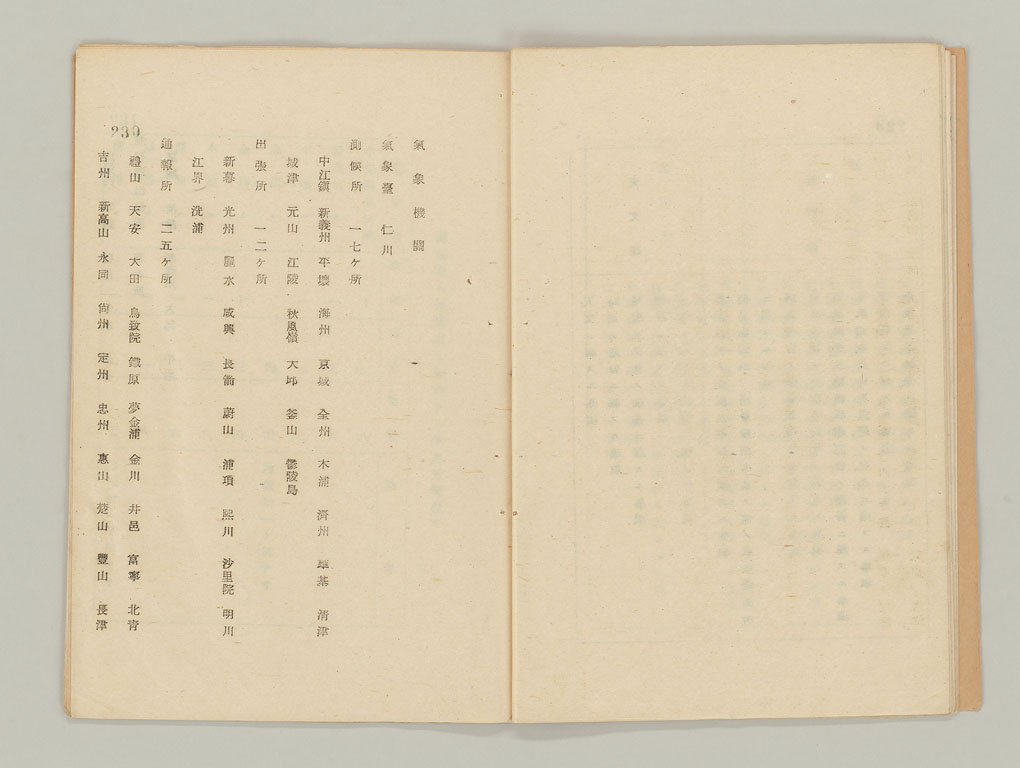 氣象機關
氣象臺 仁川
測候所 一七ヶ所
中江鎭 新義州 平壤 海州 京城 全州 木浦 濟州 雄基 清津
城津 元山 江陵 秋風嶺 大邱 釜山 鬱陵島
出張所 一二ヶ所
新幕 光州 麗水 咸興 長箭 蔚山 浦項 熙川 沙里院 明川
江界 洗浦
通報所 二五ヶ所
禮山 天安 大田 鳥致院 鐵原 夢金浦 金川 井邑 富寧 北靑
吉州 新高山 永同 尙州 定州 忠州 惠山 楚山 豐山 長津
230